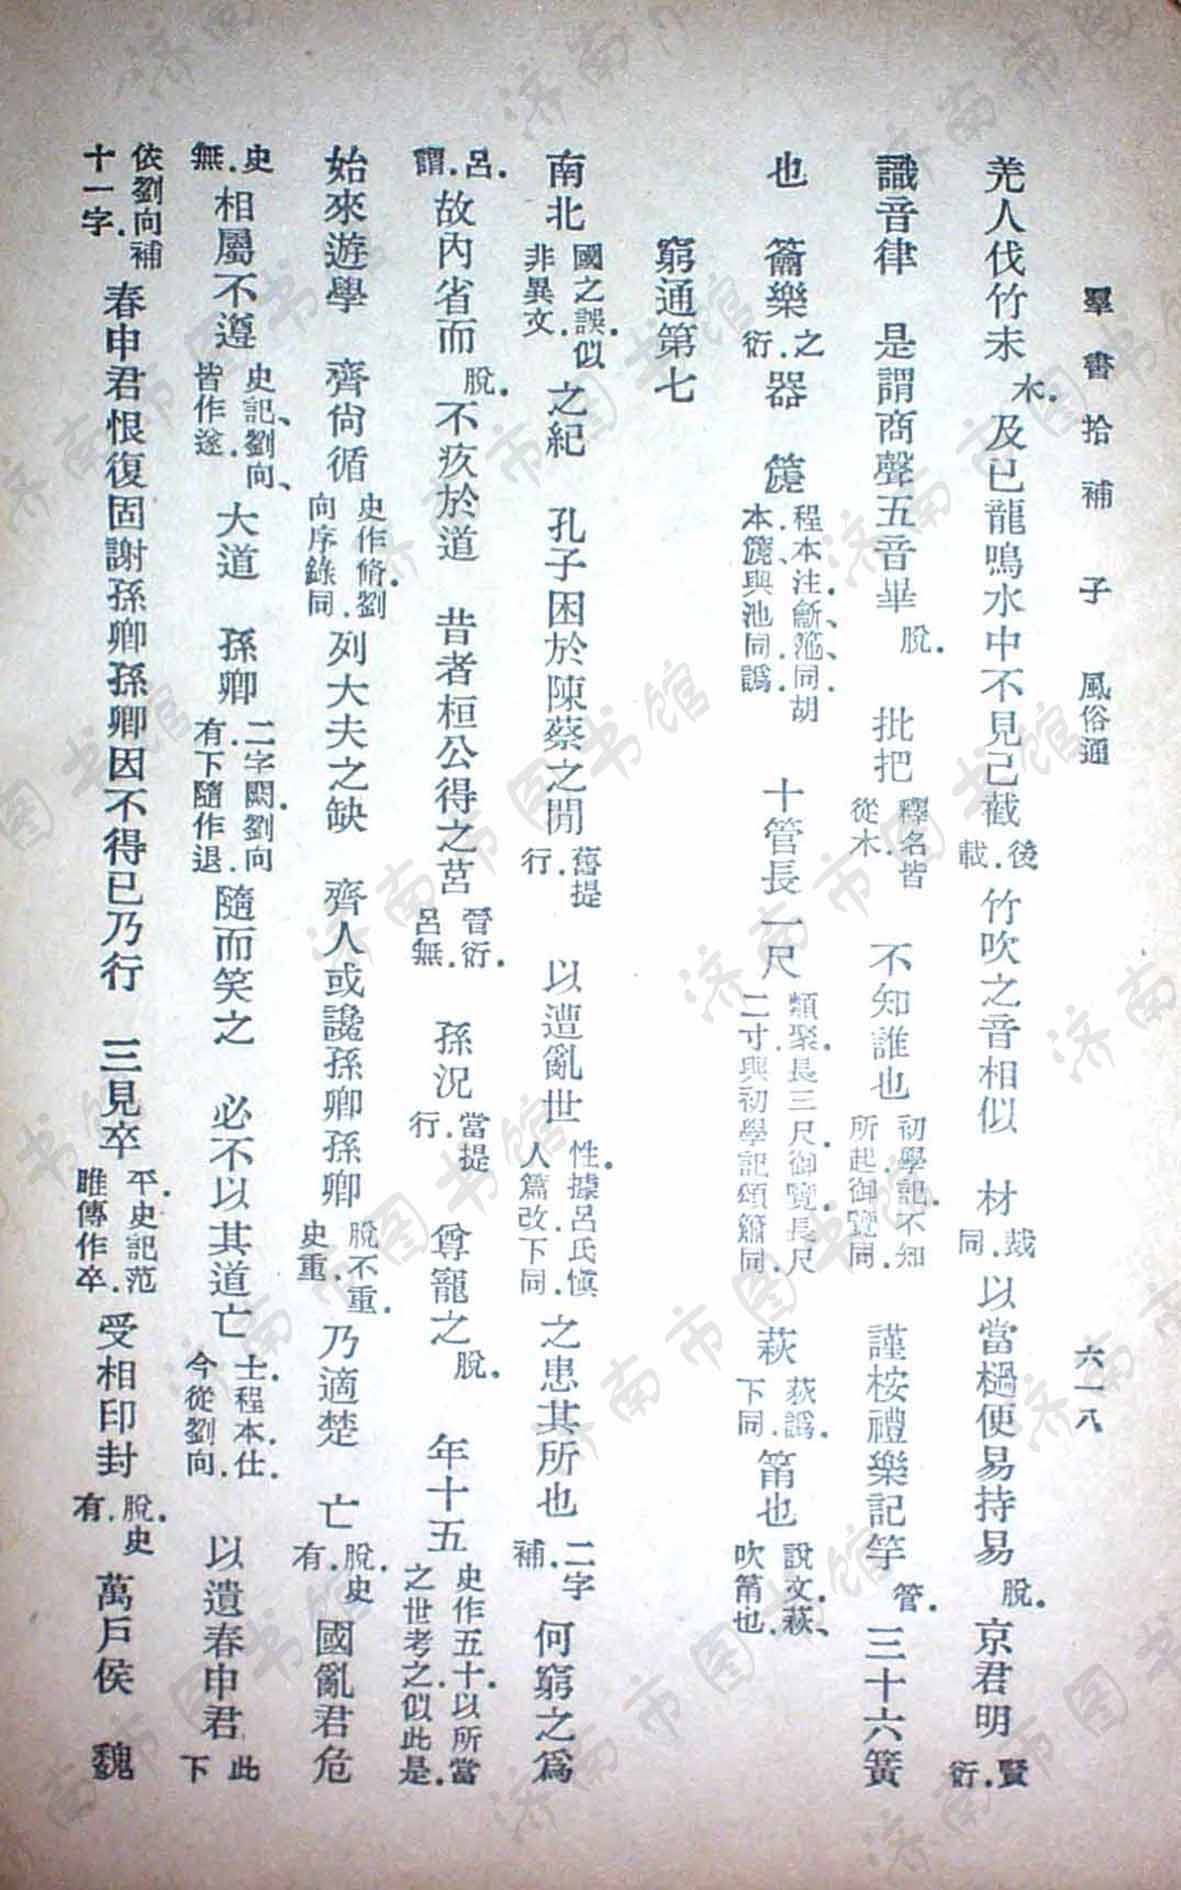 羣書拾補　子　風俗通　六一八
羌人伐竹未木．及已龍鳴水中不見己截後載．竹吹之音相似　材裁同．以當檛便易持易脫．京君明賢衍．
識音律　是謂商聲五音畢脫．批把釋名皆從木．不知誰也初學記．不知所起．御覽同．謹桉禮樂記竽管．三十六簧
也　籥樂之衍．器　箎程本注．龥、箎同．胡本箎與池同．譌．十管長一尺類聚．長三尺．御覽．長尺二寸．與初學記頌簫同．萩荻譌．下同．筩也說文．萩、吹筩也．
窮通第七
南北國之誤．似非異文．之紀　孔子困於陳蔡之閒舊提行．以遭亂世性．據呂氏愼人篇改．下同．之患其所也二字補．何窮之爲
呂．謂．故內省而脫．不疚於道　昔者桓公得之莒晉衍．呂無．孫況當提行．尊寵之脫．年十五史作五十．以所當之世考之．似此是．
始來遊學　齊尙循史作脩．劉向序錄同．列大夫之缺　齊人或讒孫卿孫卿脫不重．史重．乃適楚　亡脫．史有．國亂君危
史．無．相屬不遵史記、劉向、皆作遂．大道　孫卿二字闕．劉向有．下隨作退．隨而笑之　必不以其道亡士．程本．仕．今從劉向．以遺春申君此下
依劉向補十一字．春申君恨復固謝孫卿孫卿因不得已乃行　三見卒平．史記范睢傳作卒．受相印封脫．史有．萬戶侯　魏